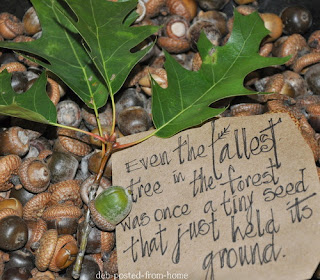 Even the tallest
tree in the forest
was once a tiny seed
that just held its
ground.
deb-posted-from-home